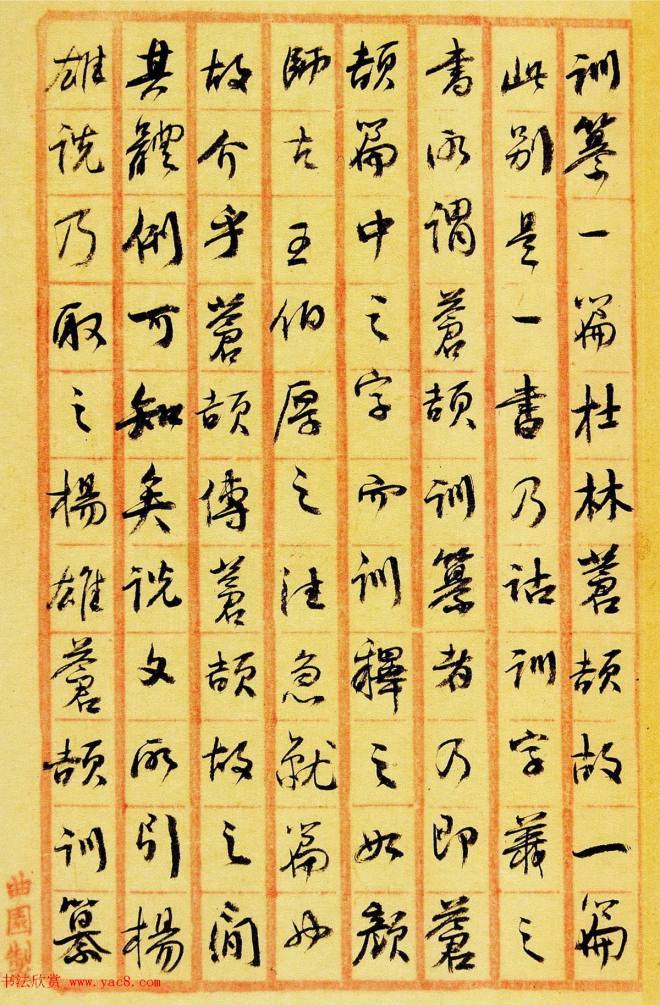 訓纂一篇杜林蒼頡故一篇
此別是一書乃詁訓字義之
書所謂蒼頡訓纂者乃即蒼
頡篇中之字而訓釋之如顏
師古王伯厚之注急就篇
故介乎蒼頡傳蒼頡故之間
其體例可知矣說文所引楊
雄說乃取之楊雄蒼頡訓纂
曲園製
书法欣赏 www.yac8.com